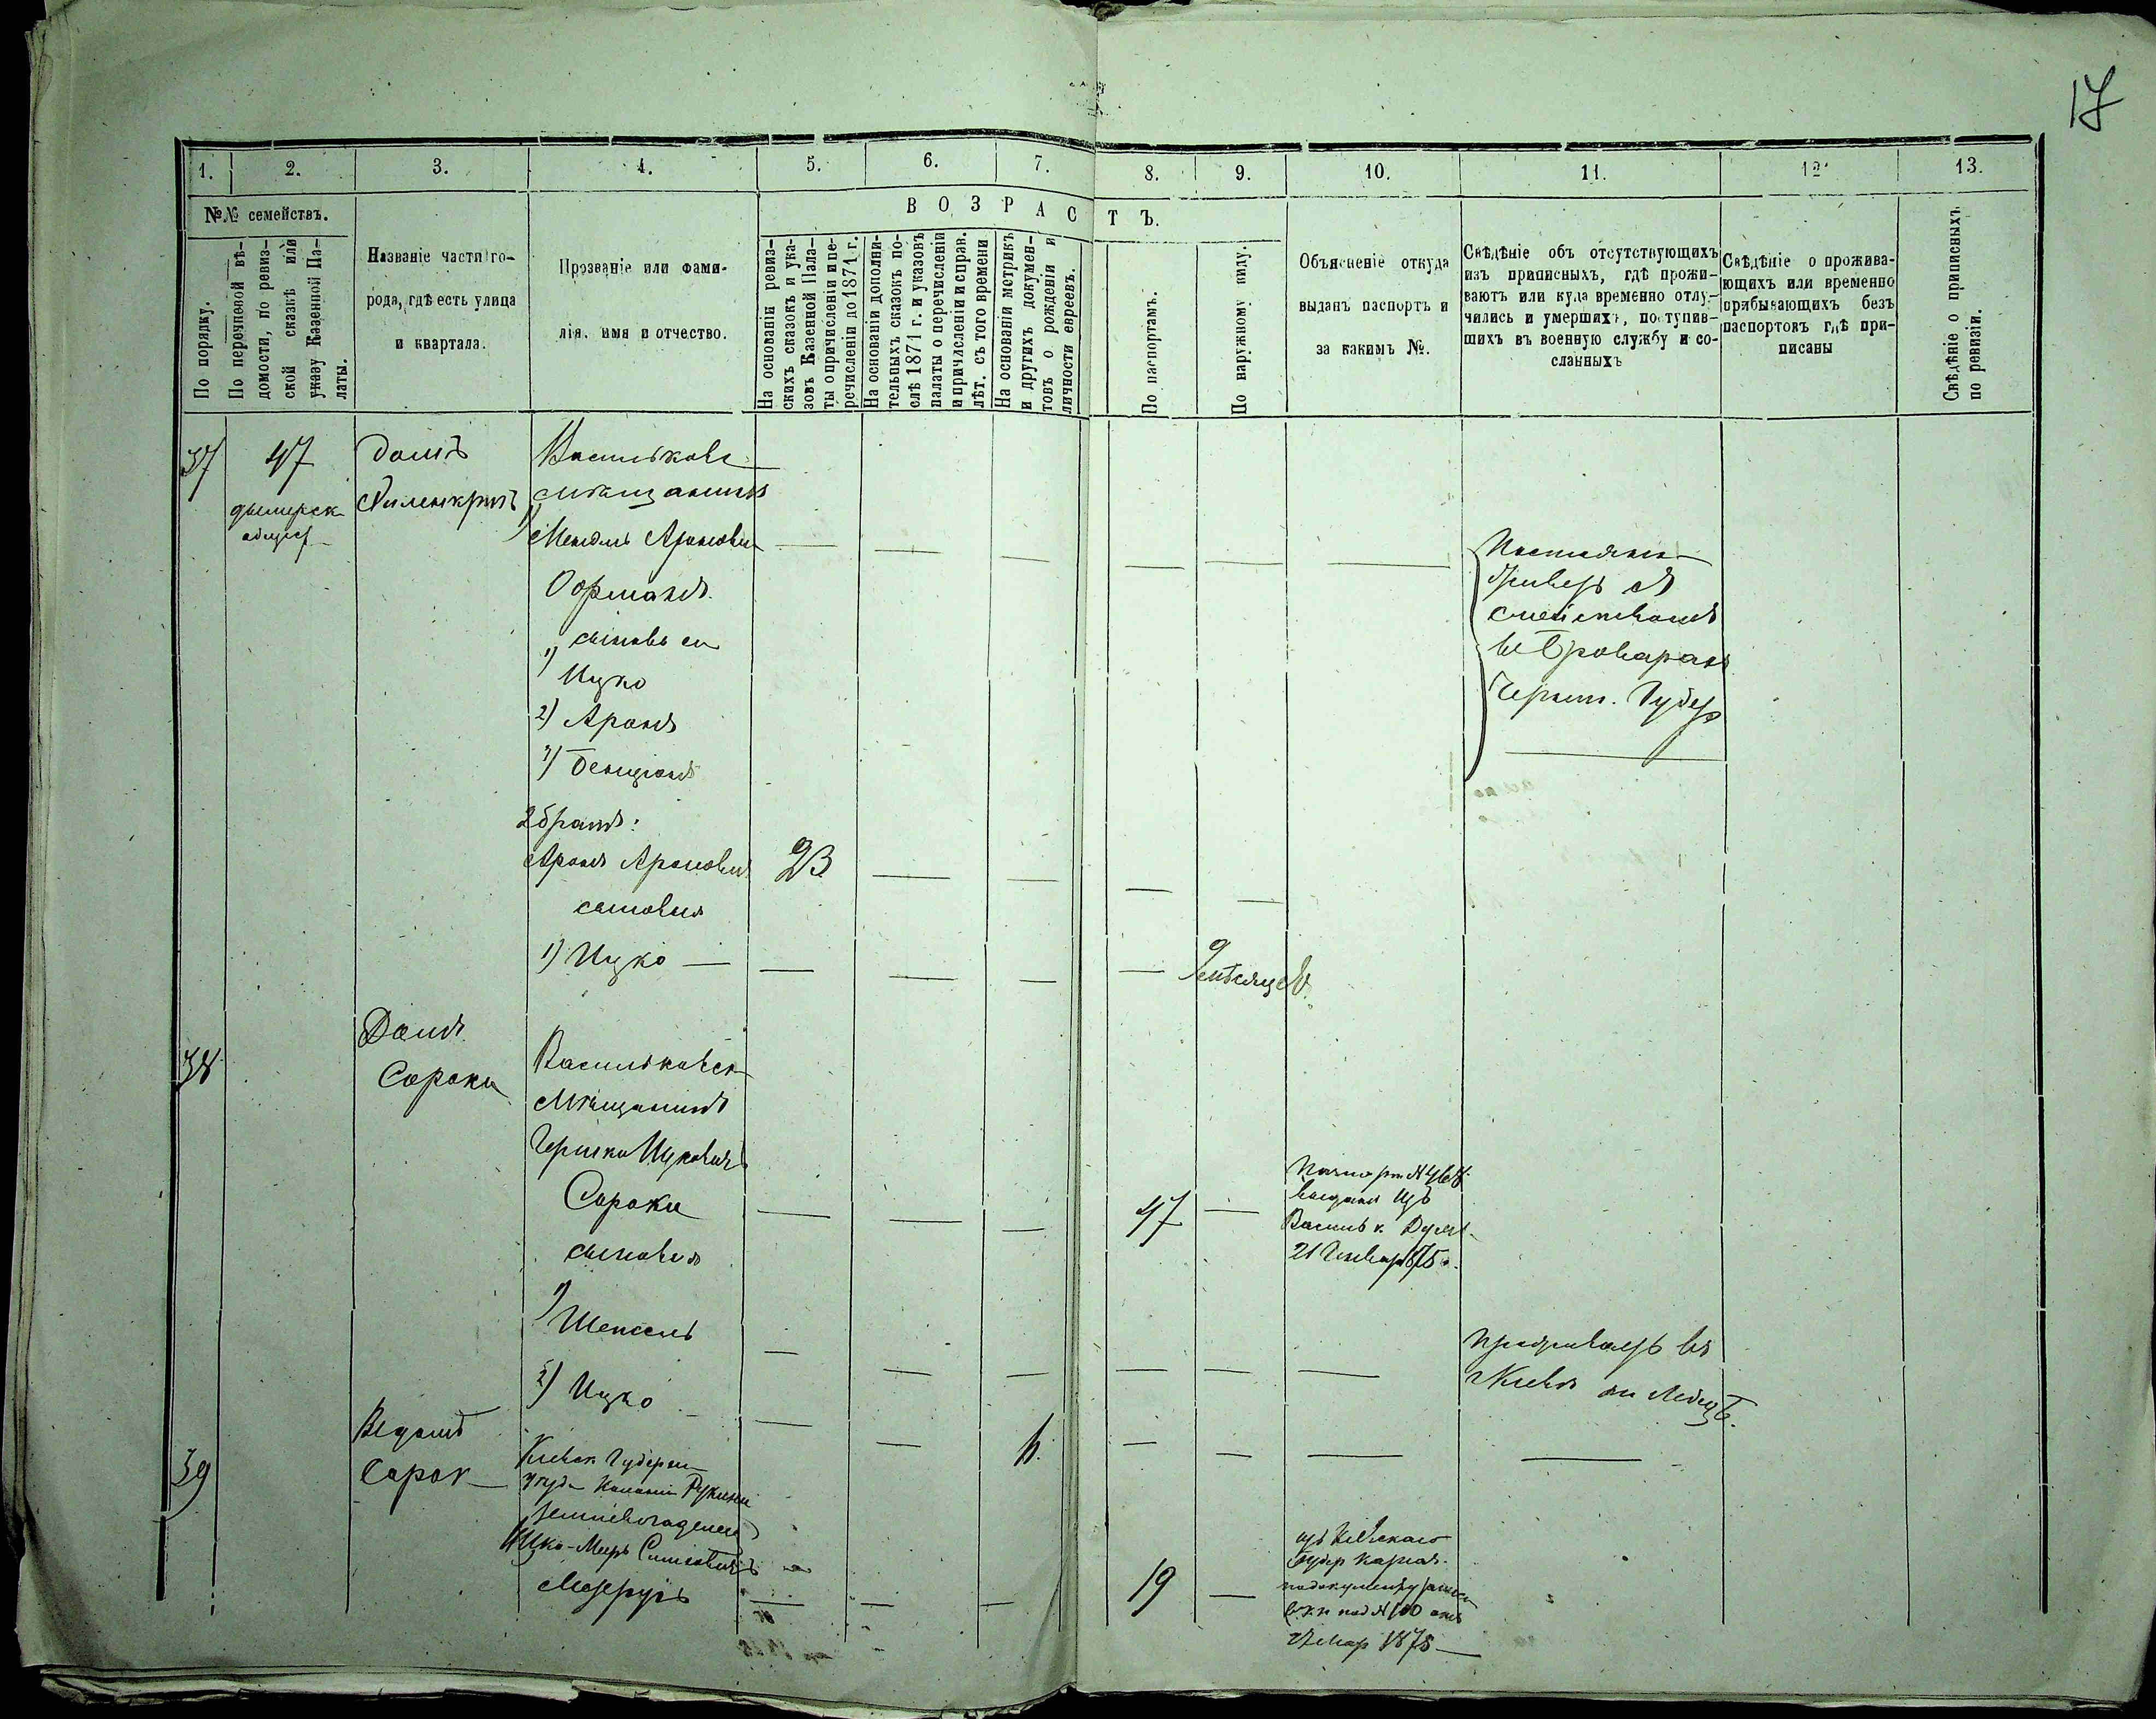 17
1. 2. 3. 4. 5. 6. 7. 8. 9. 10. 11. 12 13.
№№ семействъ.
ВОЗРАСТЪ.
По порядку.
По перечневой вѣ-
домости, по ревиз-
ской сказкѣ или
указу Казенной Па-
латы.
Названіе части го-
рода, гдѣ есть улица
и квартала.
Прозваніе или фами-
лія, имя и отчество.
На основаніи ревиз-
скихъ сказокъ и ука-
зовъ Казенной Пала-
ты о причисленіи и пе-
речисленіи до 1871 г.
На основаніи дополни-
тельныхъ сказокъ по-
слѣ 1871 г. и указовъ
палаты о перечисленіи
и причисленіи и справ.
лѣт. съ того времени
На основаніи метрикъ
и другихъ докумен-
товъ о рожденіи и
личности евреевъ.
По паспортамъ.
По наружному виду.
Объясненіе откуда
выданъ паспортъ и
за какимъ №.
Свѣдѣніе объ отсутствующихъ
изъ приписныхъ, гдѣ прожи-
ваютъ или куда временно отлу-
чились и умершихъ, поступив-
шихъ въ военную службу и со-
сланныхъ
Свѣдѣніе о прожива-
ющихъ или временно
прибывающихъ безъ
паспортовъ гдѣ при-
писаны
Свѣдѣніе о приписныхъ
по ревизіи.
37 47 домъ
дымерск
Мѣщанинъ
Мендль Аронови
сыновъ ея
1) Ицко
2) Аронъ
3) Бенціонъ
2 братъ:
Аронъ Ароновичъ 23
сыновья
1) Ицко — 9 мѣсяцевъ
семействомъ
въ Броварахъ
Черниг. Губер
38 Домъ
Сороки
Васильковск
Мѣщанинъ
Гершко Ицковичъ
Сороки 47
сыновья
1)
2) Ицко
Паспортъ №
выданъ изъ
Васильк. Думы
21 Января 1875
Проживаетъ въ
Киевѣ
39 В домѣ
Сорок
Киевск Губерни
Ицко-Меръ
19
изъ Киевскаго
под №100 отъ
Мар 1875